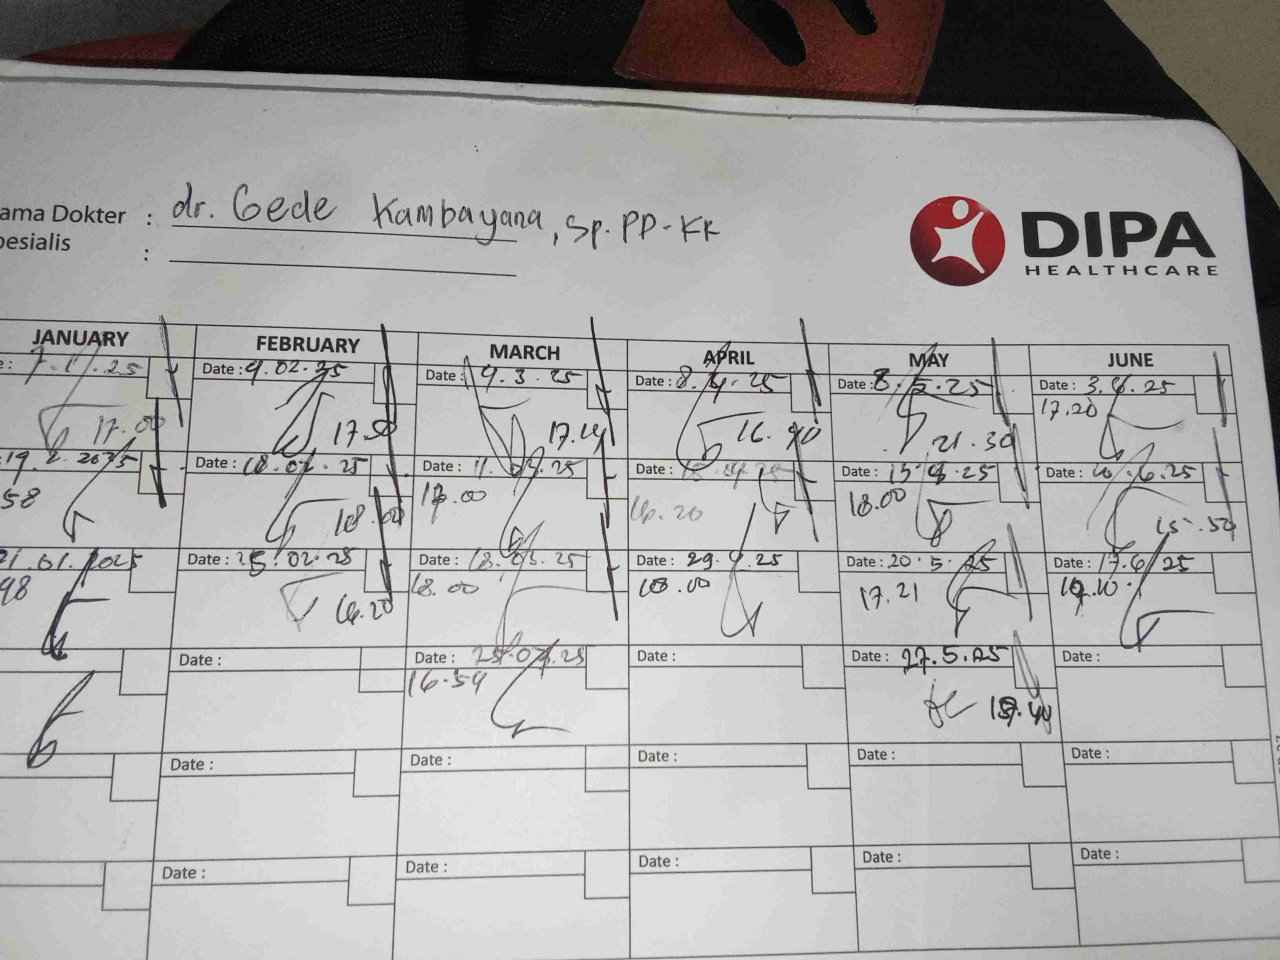 ama Dokter : dr. Gede Kambayana, Sp.PD-KR
esialis :
DIPA
HEALTHCARE
JANUARY FEBRUARY MARCH APRIL MAY JUNE
Date : 4.02.25 Date : 4.3.25 Date : 8.4.25 Date : 8.5.25 Date : 3.6.25
17.00 17.50 17.14 16.40 21.30 17.20
Date : 18.02.25 Date : 11.03.25 Date : Date : Date : 10.6.25
58 18.00 17.00 16.20 18.00 15.54
21.01.2025 Date : 25.02.25 Date : 18.03.25 Date : 29.4.25 Date : 20.5.25 Date : 17.6.25
48 16.20 18.00 18.00 17.21
Date : Date : 25.03.25 Date : Date : 27.5.25 Date :
16.54
Date : Date : Date : Date : Date :
Date : Date : Date : Date : Date :